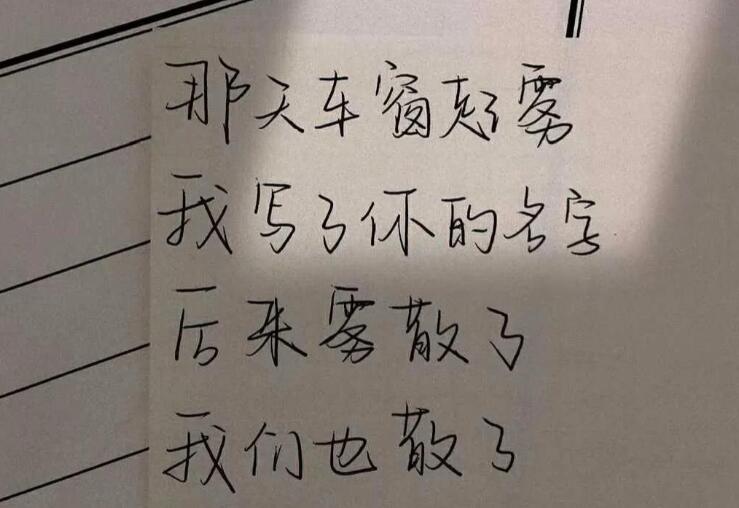 那天车窗起雾
我写了你的名字
后来雾散了
我们也散了